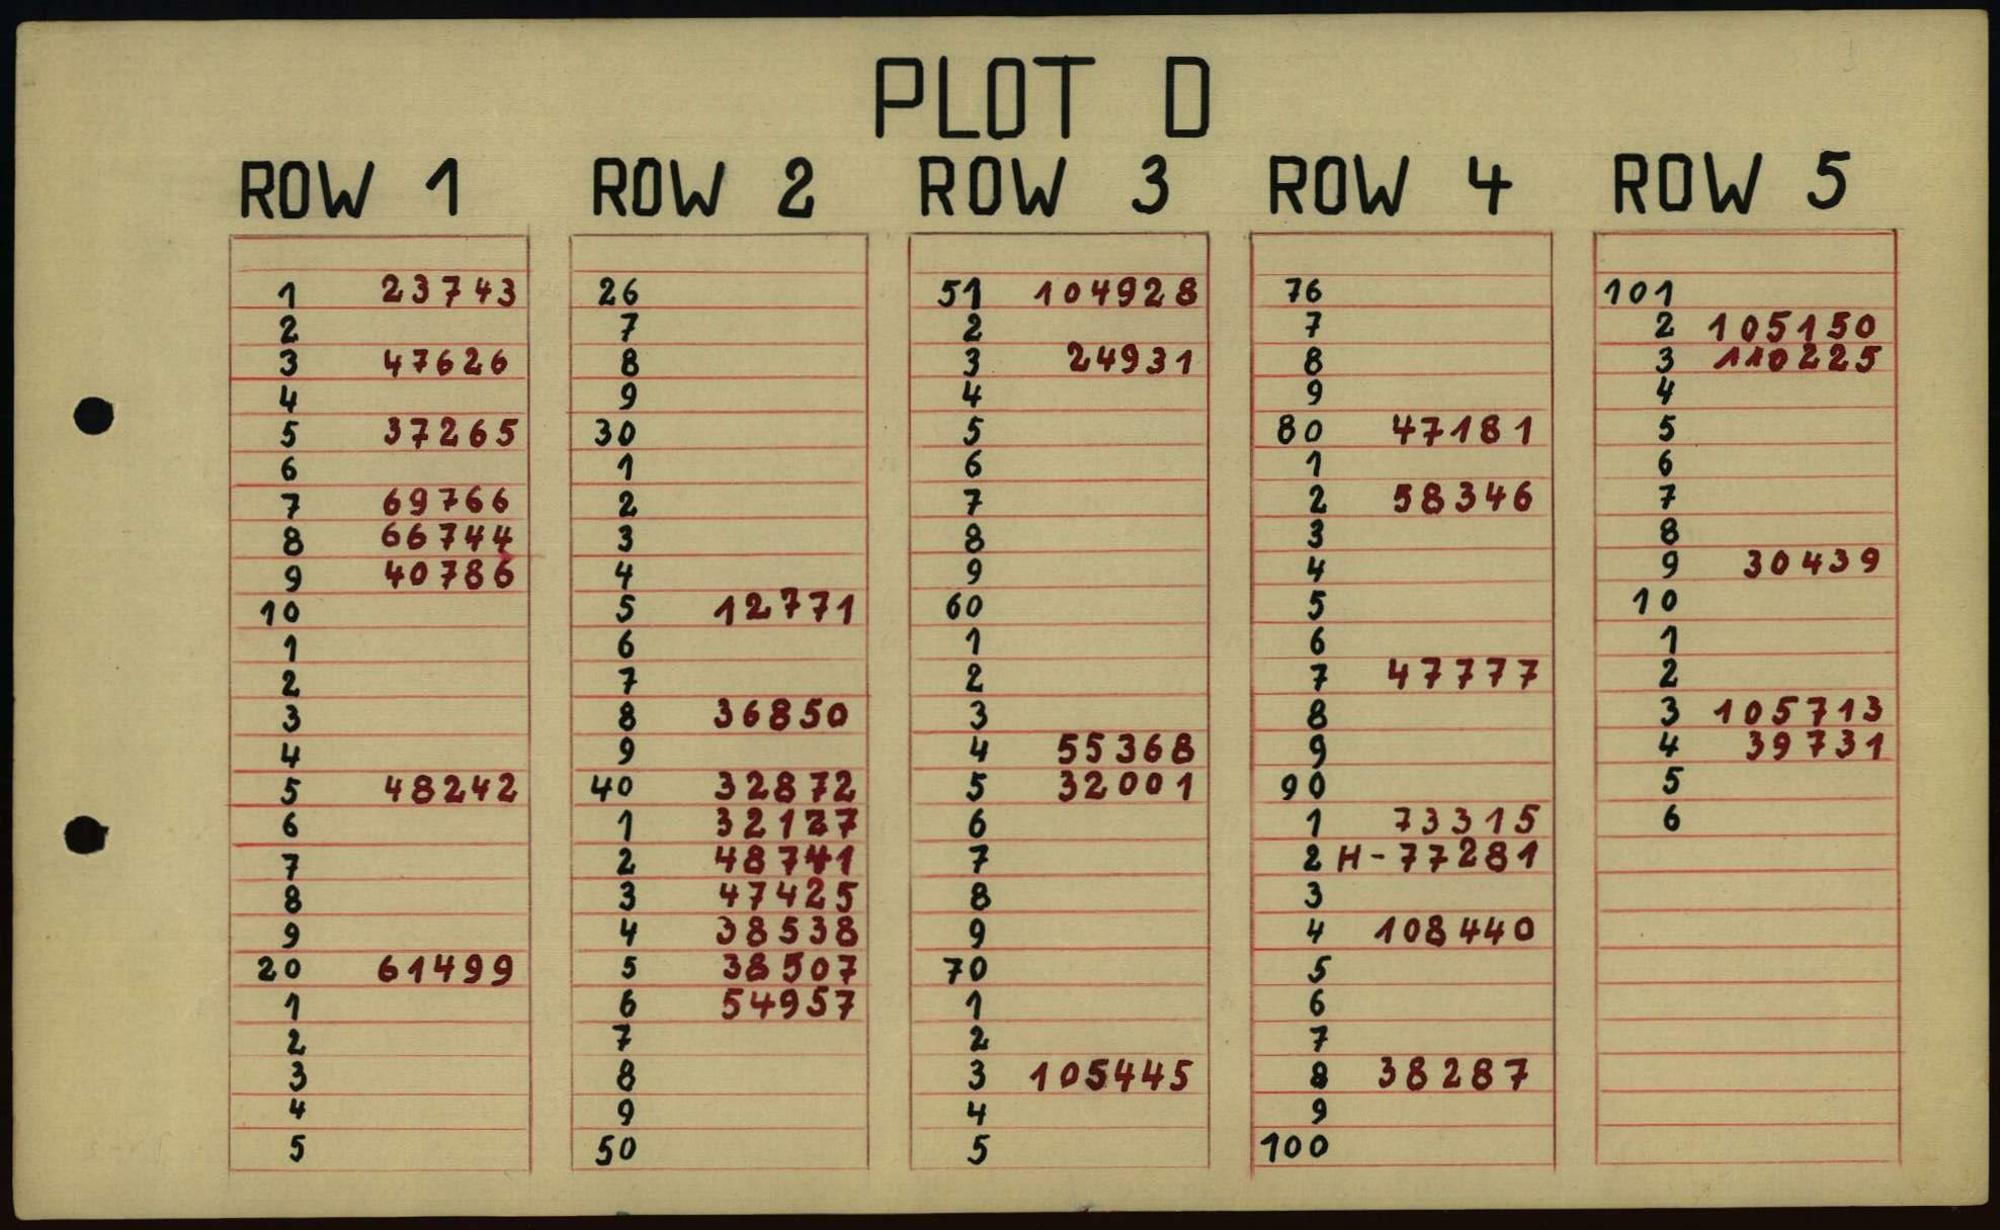 PLOT D
ROW 1 ROW 2 ROW 3 ROW 4 ROW 5
1 23743 26 51 104928 76 101
2 7 2 7 2 105150
3 47626 8 3 24931 8 3 110225
4 9 4 9 4
5 37265 30 5 80 47181 5
6 1 6 1 6
7 69766 2 7 2 58346 7
8 66744 3 8 3 8
9 40786 4 9 4 9 30439
10 5 12771 60 5 10
1 6 1 6 1
2 7 2 7 47777 2
3 8 36850 3 8 3 105713
4 9 4 55368 9 4 39731
5 48242 40 32872 5 32001 90 5
6 1 32127 6 1 73315 6
7 2 48741 7 2 H-77281
8 3 47425 8 3
9 4 38538 9 4 108440
20 61499 5 38507 70 5
1 6 54957 1 6
2 7 2 7
3 8 3 105445 8 38287
4 9 4 9
5 50 5 100